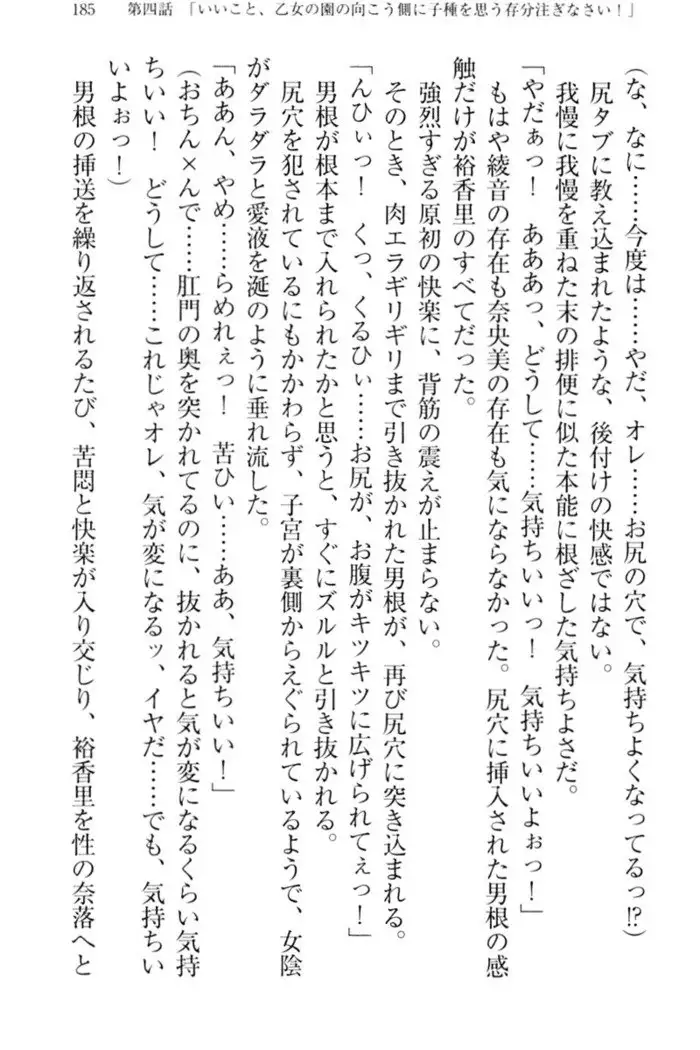 185　第四話　「いいこと、乙女の園の向こう側に子種を思う存分注ぎなさい！」
（な、なに……今度は……やだ、オレ……お尻の穴で、気持ちよくなってるっ!?）
尻タブに教え込まれたような、後付けの快感ではない。
我慢に我慢を重ねた末の排便に似た本能に根ざした気持ちよさだ。
「やだぁっ！　あああっ、どうして……気持ちいいっ！　気持ちいいよぉっ！」
もはや綾音の存在も奈央美の存在も気にならなかった。尻穴に挿入された男根の感
触だけが裕香里のすべてだった。
強烈すぎる原初の快楽に、背筋の震えが止まらない。
そのとき、肉エラギリギリまで引き抜かれた男根が、再び尻穴に突き込まれる。
「んひぃっ！　くっ、くるひぃ……お尻が、お腹がキツキツに広げられてぇっ！」
男根が根本まで入れられたかと思うと、すぐにズルルと引き抜かれる。
尻穴を犯されているにもかかわらず、子宮が裏側からえぐられているようで、女陰
がダラダラと愛液を涎のように垂れ流した。
「ああん、やめ……らめれぇっ！　苦ひい……ああ、気持ちいい！」
（おちん×んで……肛門の奥を突かれてるのに、抜かれると気が変になるくらい気持
ちいい！　どうして……これじゃオレ、気が変になるッ、イヤだ……でも、気持ちい
いよぉっ！）
男根の挿送を繰り返されるたび、苦悶と快楽が入り交じり、裕香里を性の奈落へと